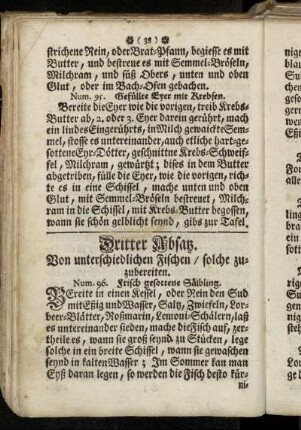 ( 38 )
strichene Rein, oder Brat-Pfann, begiesse es mit
Butter, und bestreue es mit Semmel-Bröseln,
Milchram, und süß Obers, unten und oben
Glut, oder im Bach-Ofen gebachen.
Num. 95. Gefüllte Eyer mit Krebsen.
Bereite die Eyer wie die vorigen, treib Krebs-
Butter ab, 2. oder 3. Eyer darein gerührt, mach
ein lindes Eingerührts, in Milch gewaickte Sem-
mel, stosse es untereinander, auch etliche hart-ge-
sottene Eyr-Dötter, geschnittne Krebs-Schweif-
fel, Milchram, gewürtzt; dises in dem Butter
abgetriben, fülle die Eyer, wie die vorigen, rich-
te es in eine Schissel, mache unten und oben
Glut, mit Semmel-Bröseln bestreuet, Milch-
ram in die Schissel, mit Krebs-Butter begossen,
wann sie schön gelblicht seynd, gibs zur Tafel.
Dritter Absatz.
Von unterschiedlichen Fischen / solche zu-
zubereiten.
Num. 96. Frisch gesottene Sälbling.
Bereite in einen Kessel, oder Rein den Sud
mit Eßig und Wasser, Saltz, Zwiefeln, Lor-
beer-Blätter, Roßmarin, Lemoni-Schälern, laß
es untereinander sieden, mache die Fisch auf, zer-
theile es, wann sie groß seynd zu Stücken, lege
solche in ein breite Schissel, wann sie gewaschen
seynd in kalten Wasser; Im Sommer kan man
Eyß daran legen, so werden die Fisch desto kür-
ni-